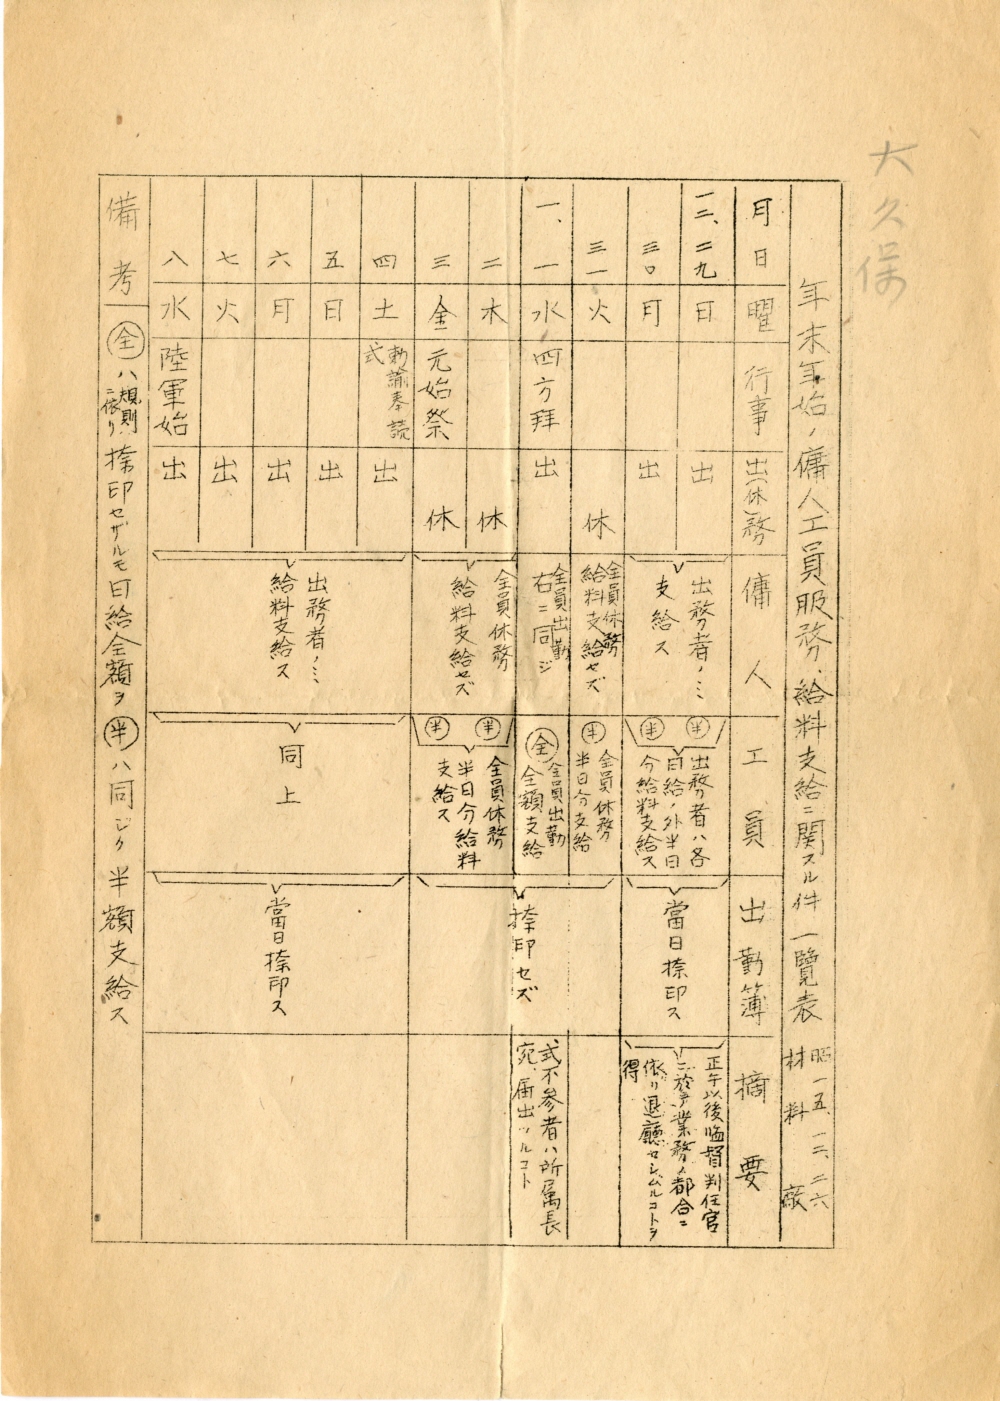 大久保
年末年始ノ傭人工員服務、給料支給ニ関スル件一覧表
昭一五、一二、二六
材料廠
月日
曜
行事
出(休)務
傭人
工員
出勤簿
摘要
一二、二九
日
出
三〇
月
出
出務者ノミ
支給ス
半
半
出務者ハ各
日給ノ外半日
分給料支給ス
當日捺印ス
正午以後臨督判任官
ニ於テ業務ノ都合ニ
依リ退廳セシムルコトヲ
得
三一
火
休
全員休務
給料支給セズ
半
全員休務
半日分支給
一、一
水
四方拜
出
全員出勤
右ニ同ジ
全
全員出勤
全額支給
捺印セズ
式不参者ハ所属長
宛届出ツルコト
二
木
休
三
金
元始祭
休
全員休務
給料支給セズ
半
半
全員休務
半日分給料
支給ス
四
土
勅諭奉読
式
出
五
日
出
六
月
出
七
火
出
八
水
陸軍始
出
出務者ノミ
給料支給ス
同上
當日捺印ス
備考
全ハ規則ニ依リ捺印セザルモ日給全額ヲ半ハ同ジク半額支給ス